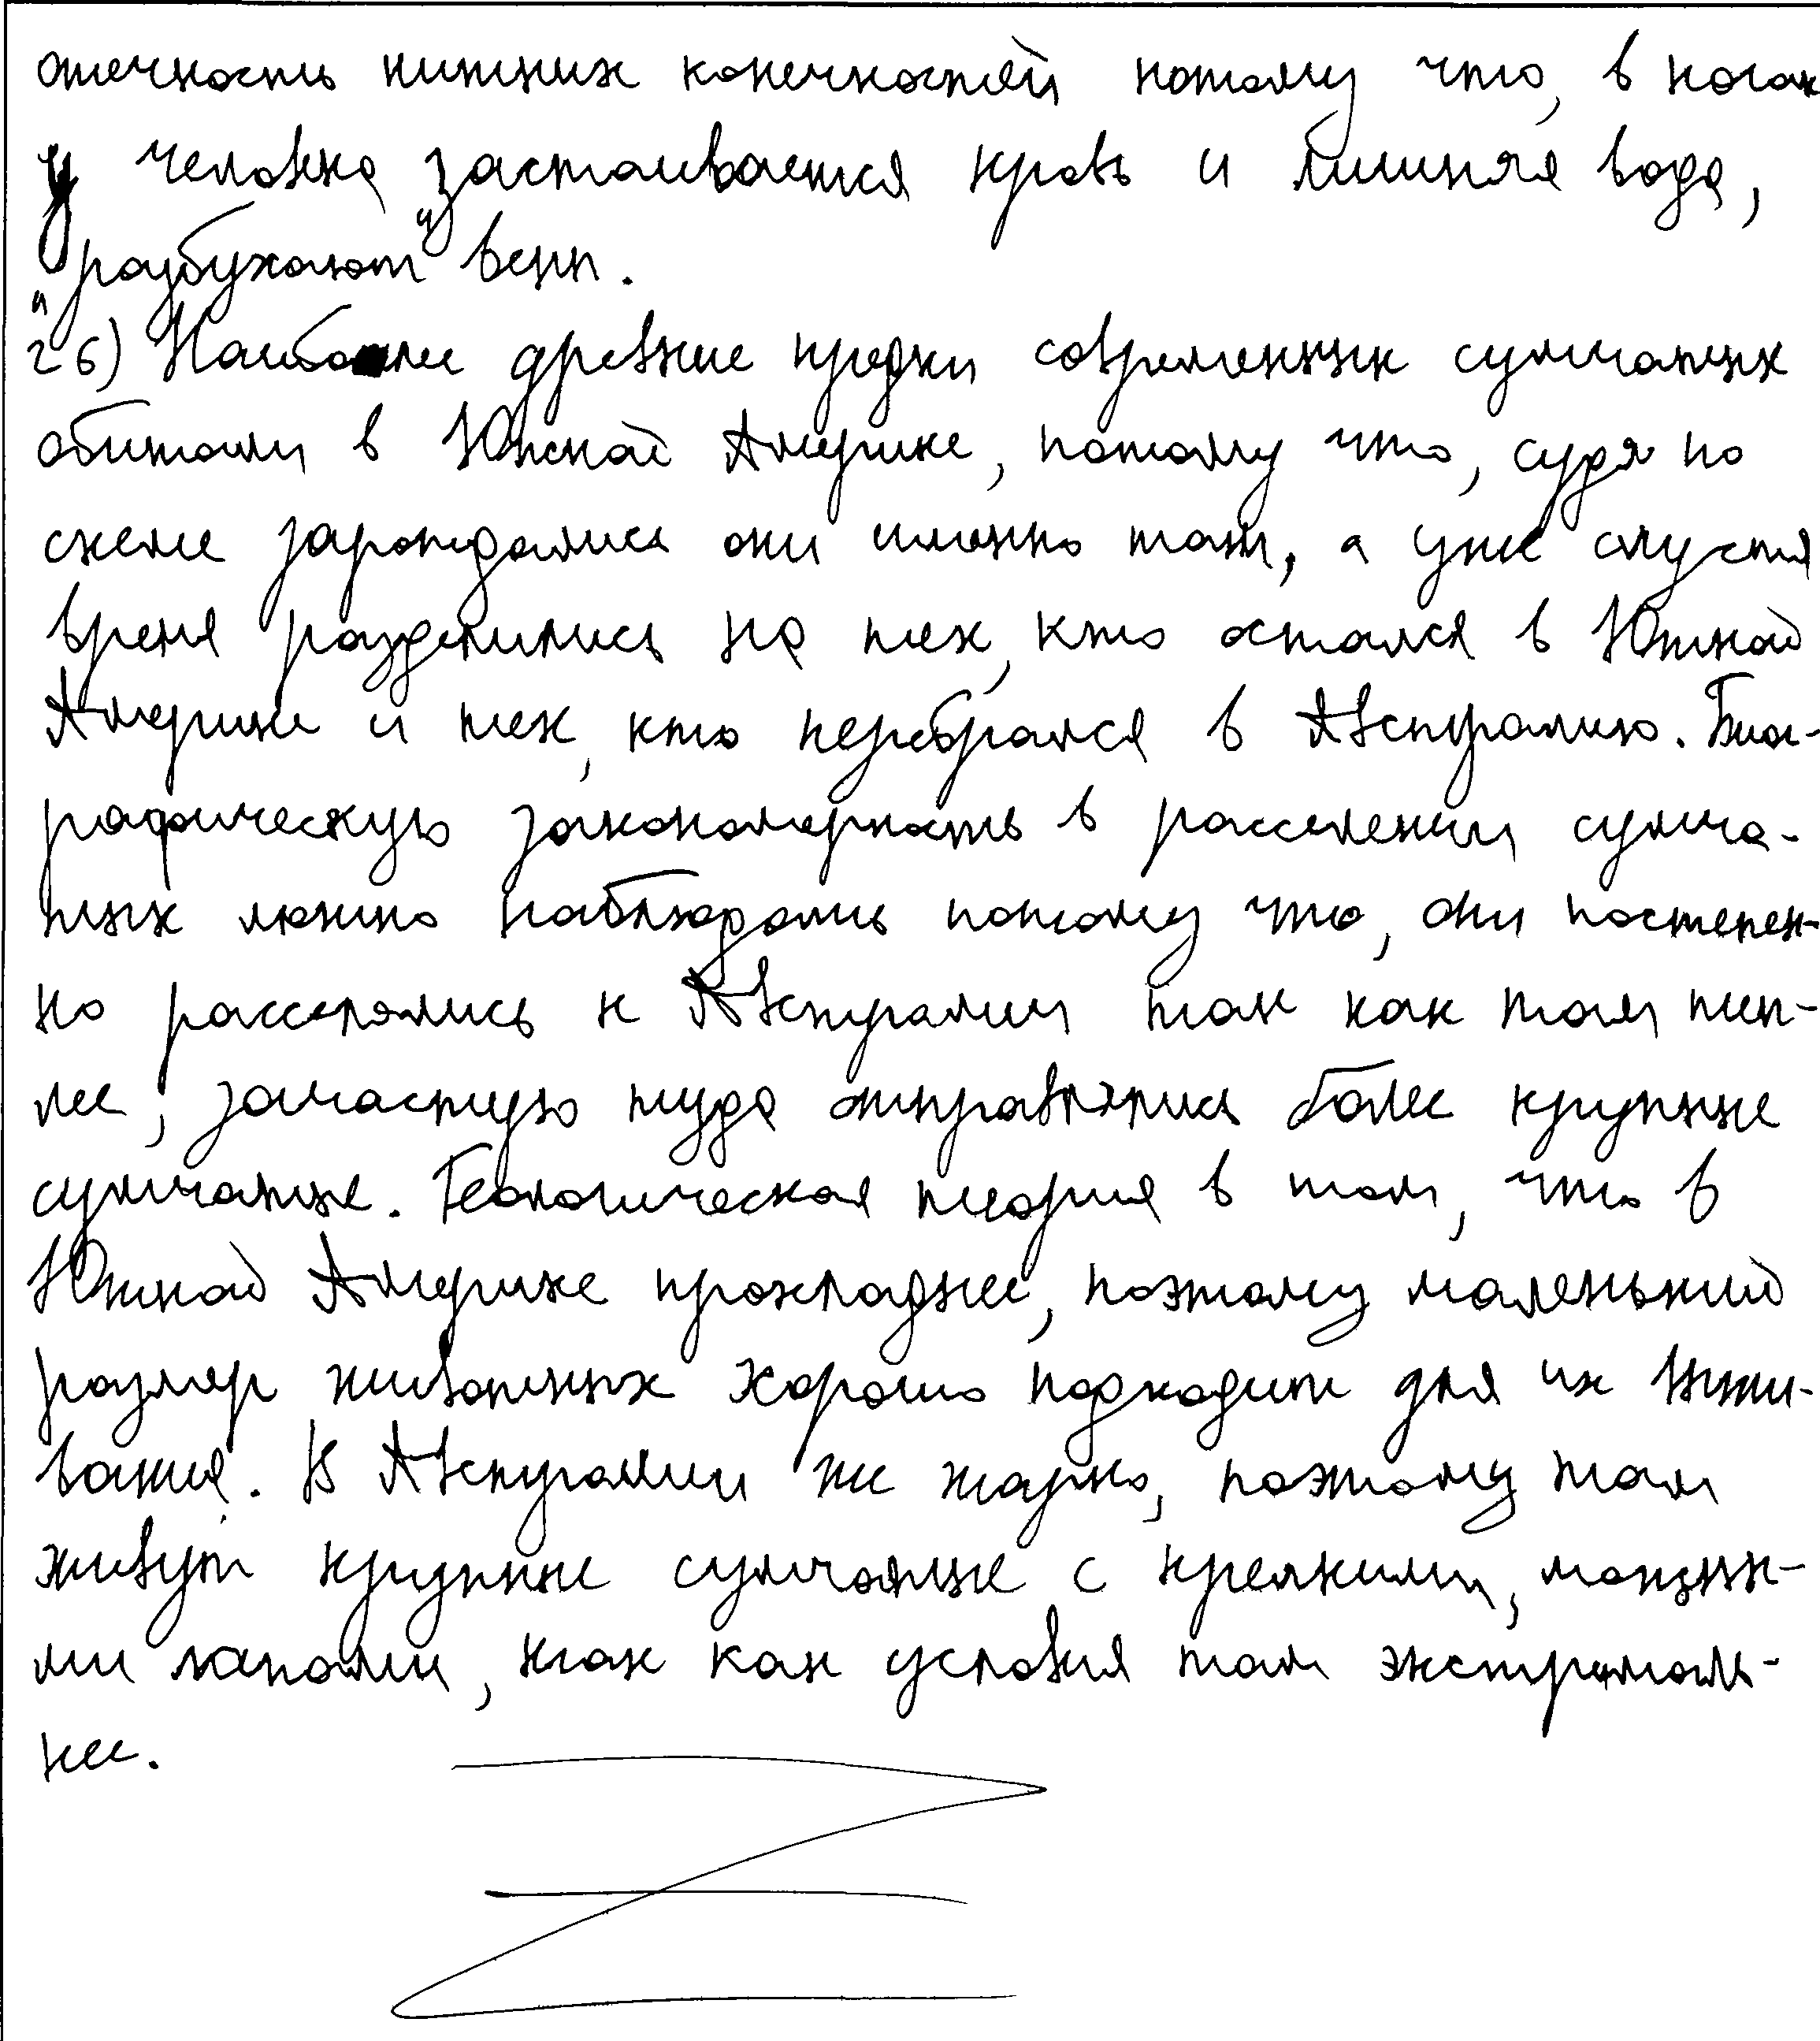 отечность нижних конечностей потому что, в ногах
у человека застаивается кровь и лишняя вода,
"разбухают" вены.
26) Наиболее древние предки современных сумчатых
обитали в Южной Америке, потому что, судя по
схеме зарождались они именно там, а уже спустя
время разделились на тех, кто остался в Южной
Америке и тех, кто перебрался в Австралию. Биог-
рафическую закономерность в расселении сумча-
тых можно наблюдать потому что, они постепен-
но расселялись к Австралии так как там теп-
лее, зачастую туда отправлялись более крупные
сумчатые. Геологическая теория в том, что в
Южной Америке прохладнее, поэтому маленький
размер животных хорошо подходит для их выжи-
вания. В Австралии же жарко, поэтому там
живут крупные сумчатые с крепкими, мощны-
ми лапами, так как условия там экстремаль-
нее.